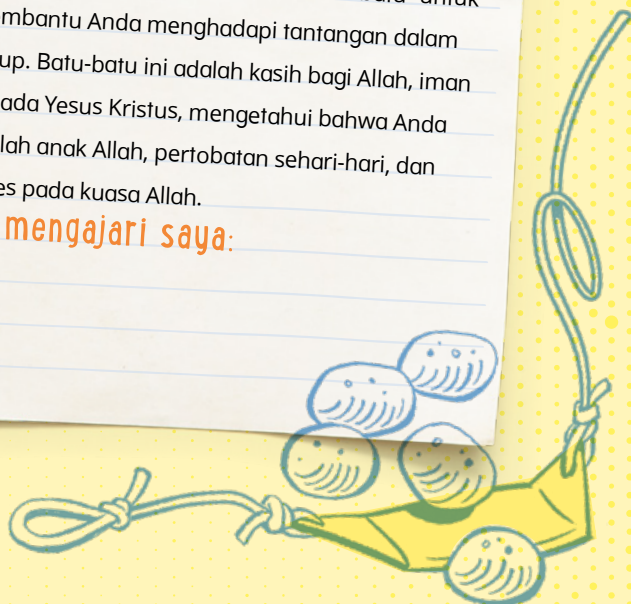 untuk
mbantu Anda menghadapi tantangan dalam
up. Batu-batu ini adalah kasih bagi Allah, iman
ada Yesus Kristus, mengetahui bahwa Anda
lah anak Allah, pertobatan sehari-hari, dan
es pada kuasa Allah.
mengajari saya: